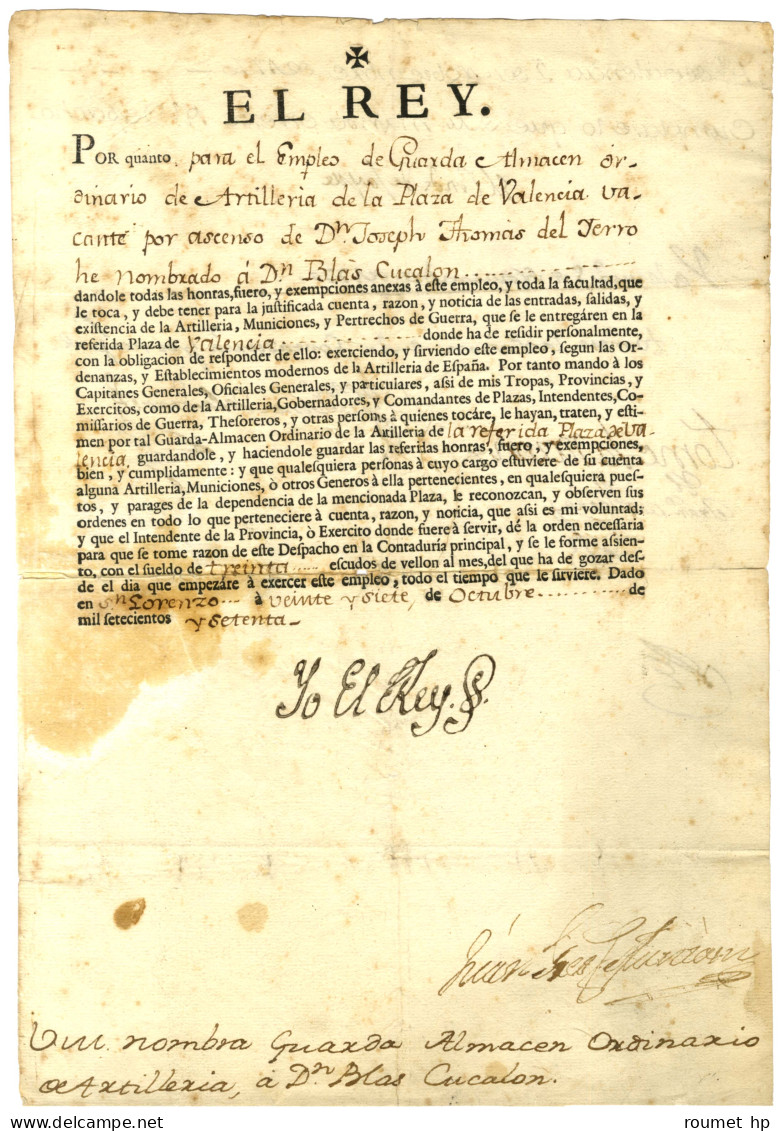 ✠
EL REY.
POR quanto para el Empleo de Guarda Almacen or-
dinario de Artilleria de la Plaza de Valencia va-
cante por ascenso de Dn. Joseph Thomàs del Ferro
he nombrado á Dn. Blàs Cucalon
dandole todas las honras, fuero, y exempciones anexas à este empleo, y toda la facultad, que
le toca, y debe tener para la justificada cuenta, razon, y noticia de las entradas, salidas, y
existencia de la Artilleria, Municiones, y Pertrechos de Guerra, que se le entregáren en la
referida Plaza de Valencia donde ha de residir personalmente,
con la obligacion de responder de ello: exerciendo, y sirviendo este empleo, segun las Or-
denanzas, y Establecimientos modernos de la Artilleria de España. Por tanto mando à los
Capitanes Generales, Oficiales Generales, y particulares, assi de mis Tropas, Provincias, y
Exercitos, como de la Artilleria, Gobernadores, y Comandantes de Plazas, Intendentes, Co-
missarios de Guerra, Thesoreros, y otras personas à quienes tocáre, le hayan, traten, y esti-
men por tal Guarda-Almacen Ordinario de la Artilleria de la referida Plaza de Va-
lencia, guardandole, y haciendole guardar las referidas honras, fuero, y exempciones,
bien, y cumplidamente: y que qualesquiera personas à cuyo cargo estuviere de su cuenta
alguna Artilleria, Municiones, ò otros Generos à ella pertenecientes, en qualesquiera pues-
tos, y parages de la dependencia de la mencionada Plaza, le reconozcan, y observen sus
ordenes en todo lo que perteneciere à cuenta, razon, y noticia, que assi es mi voluntad;
y que el Intendente de la Provincia, ò Exercito donde fuere à servir, dé la orden necessaria
para que se tome razon de este Despacho en la Contaduría principal, y se le forme assien-
to, con el sueldo de treinta escudos de vellon al mes, del que ha de gozar des-
de el dia que empezáre à exercer este empleo, todo el tiempo que le sirviere. Dado
en Sn. Lorenzo à veinte y siete de Octubre de
mil setecientos y setenta
Yo El Rey.
Juan
V.M. nombra Guarda Almacen Ordinario
de Artilleria, á Dn. Blas Cucalon.
www.delcampe.net
roumet hp